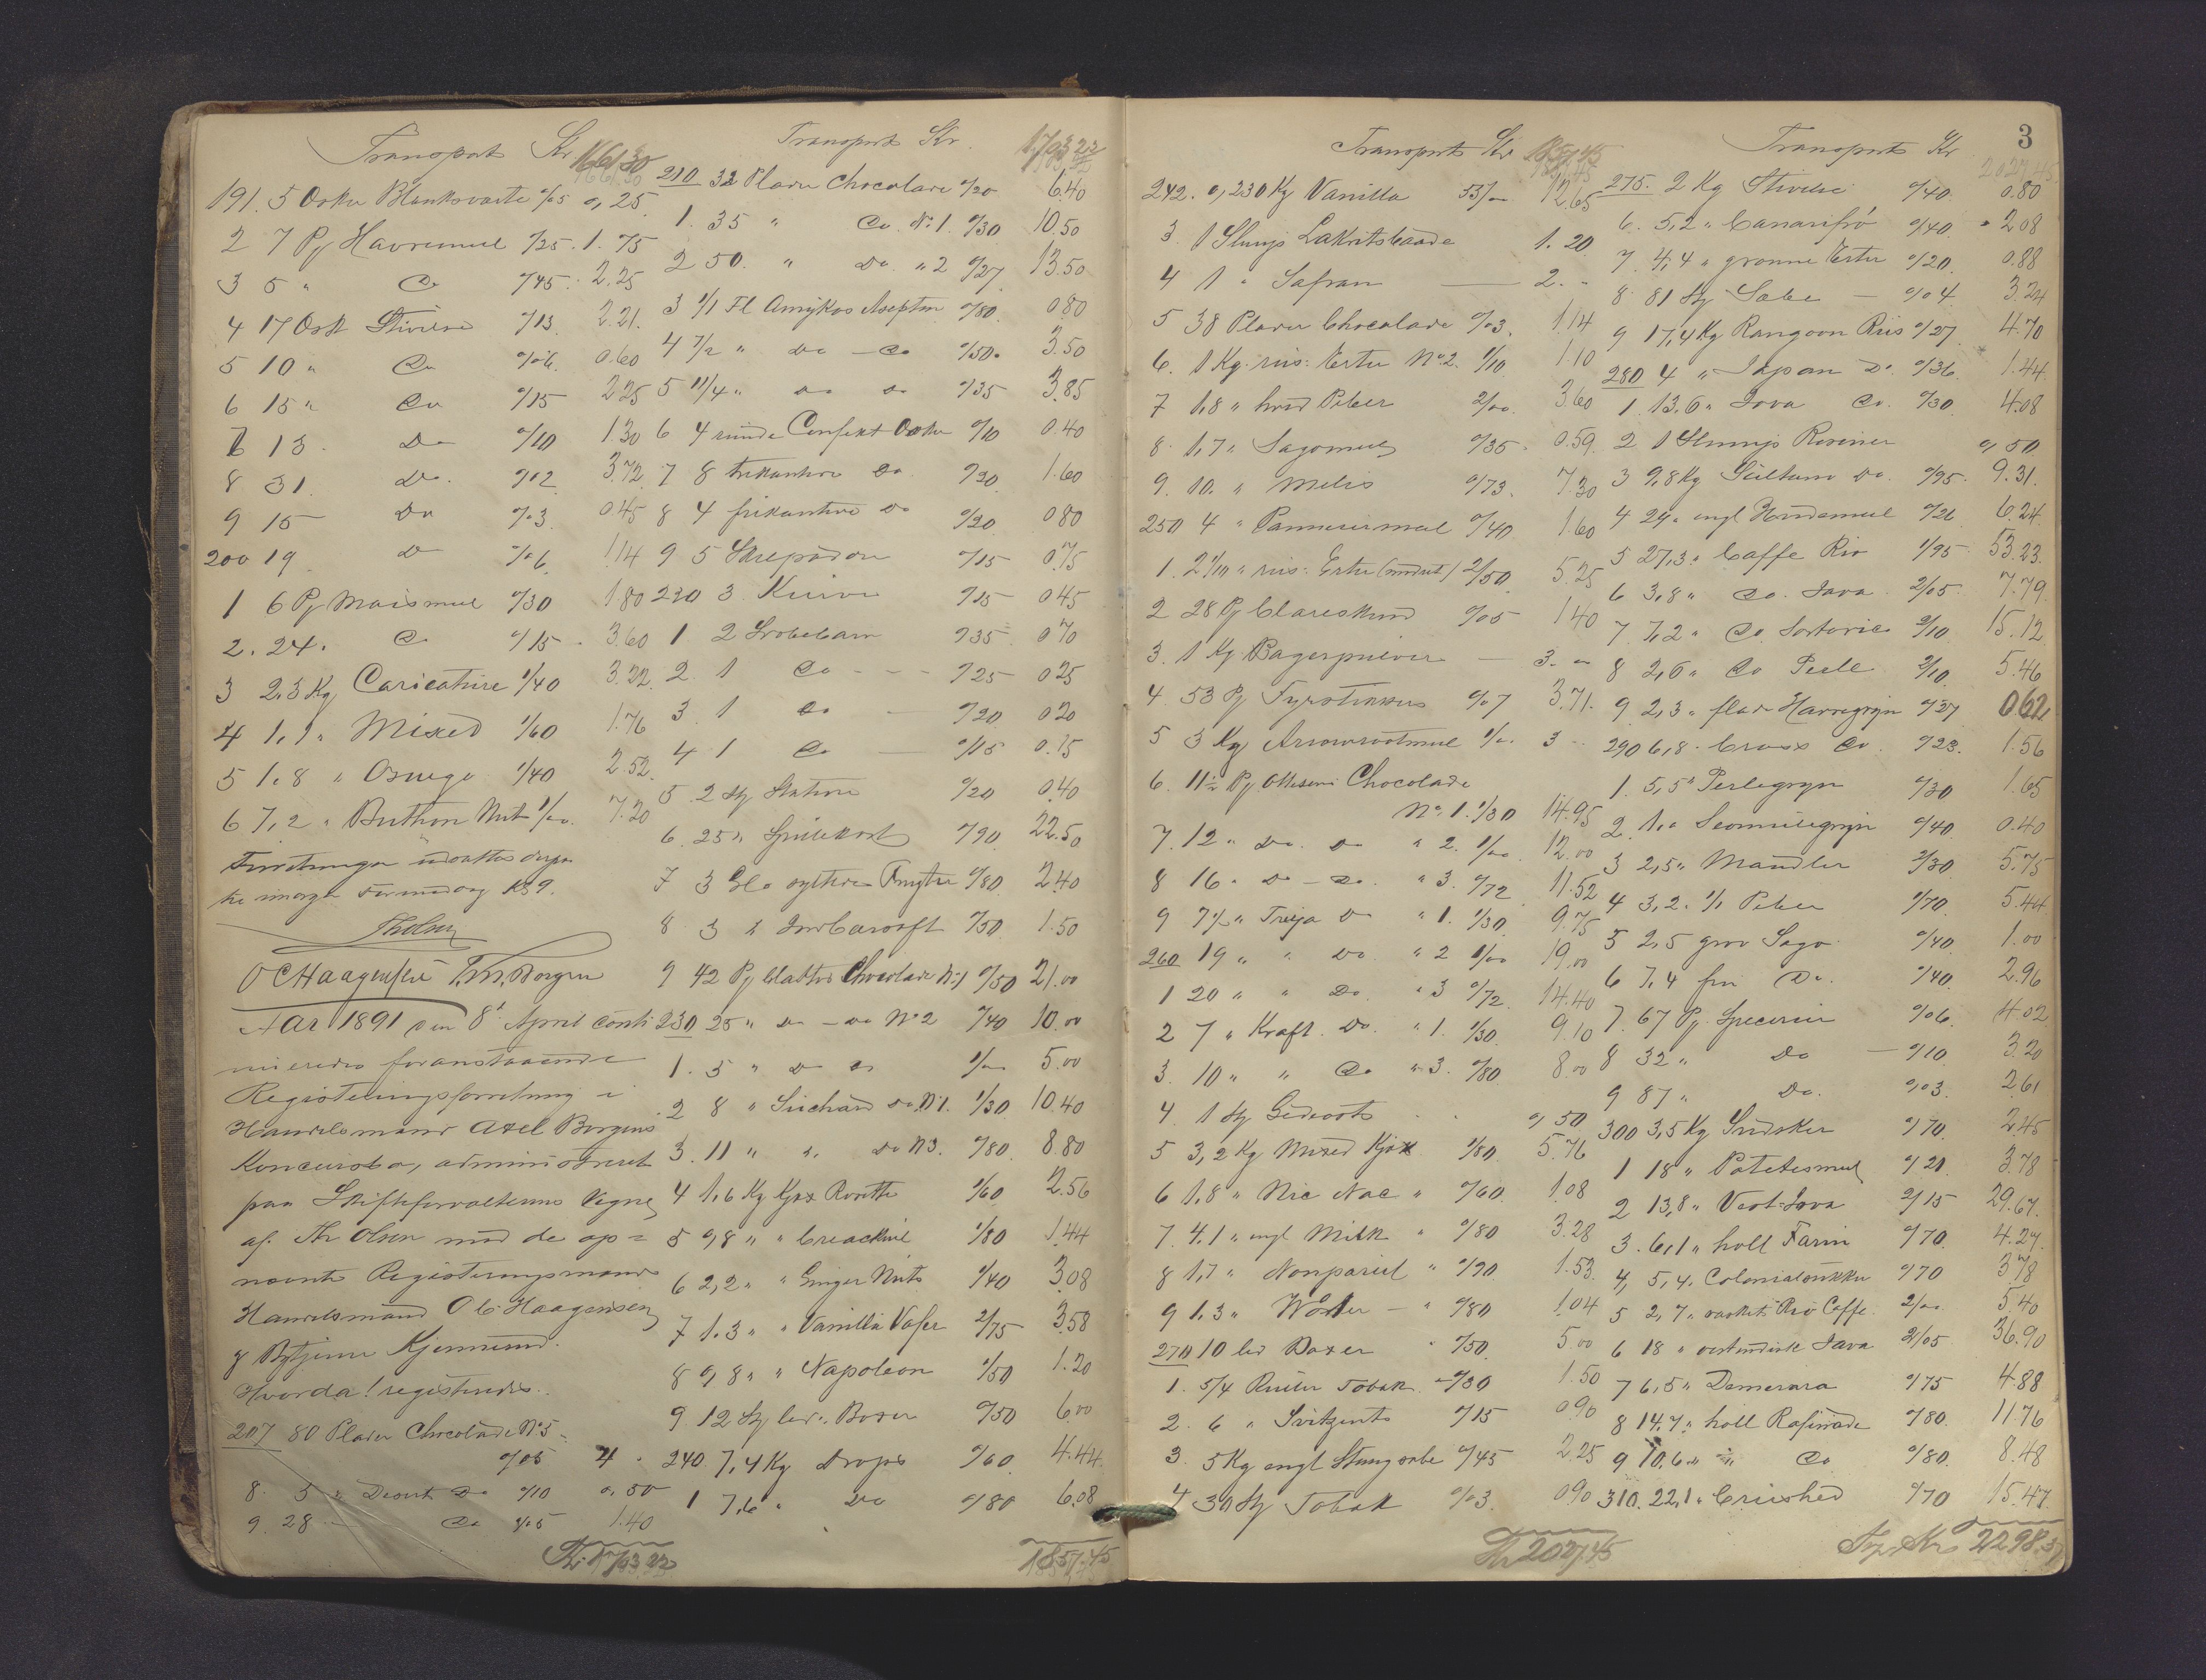 Transport Kr 1661.30
191. 5 Æsker Blanksværte 0/05 0,25
2 7 Pj Havremel 0/25. 1.75
3 5 " Do 0/45. 2.25
4 17 Æsk Stivelse 0/13 2.21.
5 10 " Do 0/06. 0.60
6 15 " Do 0/15 2.25
7 13. Do 0/10 1.30
8 31. Do. 0/12 3.72
9 15 Do 0/03. 0.45
200 19 Do 0/06. 1.14
1 6 Pj Maismel 0/30 1.80
2. 24. Do 0/15. 3.60
3 2.3 Kg Caricature 1/40 3.22.
4 1.1 " Mixed 1/60 1.76
5 1.8 " Osuego 1/40 2.52.
6 7,2 " Buthon Nut 1/00. 7.20
Forretningen udsattes derpaa
til imorgen Formiddag Kl 9.
Th Olsen
O C Haagensen T. M. Borgen
Aar 1891 den 8de April conti-
nueredes foranstaaende
Registeringsforretning i
Handelsmand Axel Borgens
Koncursbo, administreret
paa Skifteforvalterens Vegne
af Th Olsen med de op=
nævnte Registeringsmænd
Handelsmand O C Haagensen
g Bytjener Kjennerud.
Hvorda! registeredes.
207 80 Plader Chocolade No 5
0/05 4 "
8. 5 " Desert Do 0/10 0,50
9. 28 — Do 0/05 1.40
Kr. 1703.22
Transport Kr. 1703.22
210 32 Plader Chocolade 0/20 6.40
1. 35 " Do. No 1. 0/30 10.50
2 50. " Do. " 2 0/27. 13.50
3 1/1 Fl Amykos Aseptin 0/80. 0.80
4 7/2 " Do — Do 0/50. 3.50
5 11/4 " Do Do 0/35 3.85
6 4 runde Confekt Æsker 0/10 0.40
7 8 trekantede Do. 0/20. 1.60
8 4 firkantede Do 0/20 0.80
9 5 0/15 0.75
220 3 Kurve 0/15 0.45
1. 2 0/35 0.70
2. 1 Do - - - 0/25 0.25
3. 1 Do — 0/20 0.20
4 1 Do — 0/15 0.15
5 2 St 0/20 0.40
6. 25 " Spillekort 0/90. 22.50
7 3 Gl. syltede Frugter 0/80. 2.40
8 3 " 0/50 1.50
9 42 Pj Chocolade No 1 0/50 21.00
230 25 " Do — Do No 2 0/40 10.00
1. 5 " Do Do 1/00 5.00
2 8 " Suchard Do. No 1. 1/30 10.40
3. 11 " " Do No 3. 0/80. 8.80
4 1,6 Kg Kjæx Rosette 1/60 2.56
5 0,8 " " 1/80 1.44
6 2,2 " " Ginger Nuts 1/40 3.08
7 1.3 " " Vanilla Vafer 2/75 3.58
8 0,8 " " Napoleon 1/50 1.20
9 12 St 0/50 6.00
240. 7,4 Kg Drops 0/60. 4.44.
1 7,6 " Do 0/80 6.08
1857.45
3
Transport Kr 1857.45
242. 0,230 Kg Vanilla 55/00 12.65
3. 1 Slumps Lakritsbaade 1.20.
4 1 " Safran — 2. "
5 38 Plader Chocolade 0/03. 1.14
6. 1 Kg. rus: Erter No 2. 1/10 1.10
7 1,8 " hvid Peber 2/00. 3.60
8. 1,7 " Sagomel 0/35. 0.59.
9. 10. " Melis 0/73. 7.30
250 4 " 0/40 1.60
1. 2 1/10 " rus: Erter 2/50. 5.25
2 28 Pj 0/05 1.40
3. 1 Kg Bagerpulver — 3. "
4. 53 Pj Fyrstikker 0/07 3.71.
5 3 Kg Arrowrootmel 1/00. 3 "
6. 11 1/2 Pj Chocolade
No 1. 1/30 14.95
7. 12 " Do. Do " 2. 1/00. 12.00
8 16. Do — Do. " 3. 0/72 11.52
9 7 1/2 " Freja Do " 1. 1/30. 9.75
260 19 " " Do. " 2 1/00 19.00
1 20 " " Do. " 3 0/72. 14.40
2 7 " Kraft. Do. " 1. 1/30. 9.10
3. 10 " " Do " 3. 0/80. 8.00
4. 1 St . . 0,50
5 3,2 Kg Mixed Kjæx 1/80. 5.76
6 1,8 " Nic Nac " 0/60. 1.08
7. 4.1 " engl Milk " 0/80 3.28
8 1,7 " Nonpariel " 0/90 1.53.
9 1.3 " — " 0/80 1.04
270 10 0/50. 5.00
1. 5/4 Tobak 0/30 1.50
2. 6 " 0/15 0.90
3. 5 Kg engl Stangsæbe 0/45 2.25
4 30 St Tobak 0/03. 0.90
Kr 2027.45
Transport Kr 2027.45
275. 2 Kg Stivelse 0/40. 0.80
6. 5,2 " Canarifrø 0/40. 2.08
7. 4,4 " grønne Erter 0/20. 0.88
8. 81 St Sæbe — 0/04. 3.24
9 17,4 Kg Rangoon Ris 0/27 4.70
280 4 " Japan Do. 0/36. 1.44.
1. 13.6 " Java Do. 0/30 4.08
2 1 Slumps Rosiner 0,50
3 9,8 Kg Sultana Do. 0/95. 9.31.
4 24 " engl 0/26 6.24
5 27,3 " Caffe Rio 1/95. 53.23.
6 3,8 " Do. Java 2/05. 7.79.
7 7,2 " Do. 2/10 15.12
8 2,6 " Do Perle 2/10 5.46
9 2,3 " Havregryn 0/27 0.62
290 6,8. Do. 0/23. 1.56
1. 5,5 " Perlegryn 0/30 1.65
2 1,0 Semulegryn 0/40. 0.40
3 2,5 " Mandler 2/30 5.75
4 3,2. 1/1 Peber 1/70. 5.44
5 2,5 grov Sago 0/40. 1.00
6 7,4 fin Do. 0/40. 2.96
7. 67 Pj. Specerier 0/06. 4.02
8 32 " Do — 0/10 3.20
9 87 " Do. 0/03. 2.61
300 3,5 Kg Svidsker 0/70. 2.45
1 18 " Potetesmel 0/21 3.78
2 13,8 " Vest-Java 2/15 29.67.
3. 6,1 " holl Farin 0/70. 4.27.
4, 5,4. Colonialsukker 0/70 3.78
5 2,7 " Rio Caffe. 2/00. 5.40
6 18 " ostindisk Java 2/05 36.90
7 6,5 " Demerara 0/75 4.88
8 14.7 " holl Rafinade 0/80. 11.76
9 10,6 " " Do 0/80. 8.48
310. 22,1 " Crushed 0/70 15.47.
Trp. Kr. 2298.